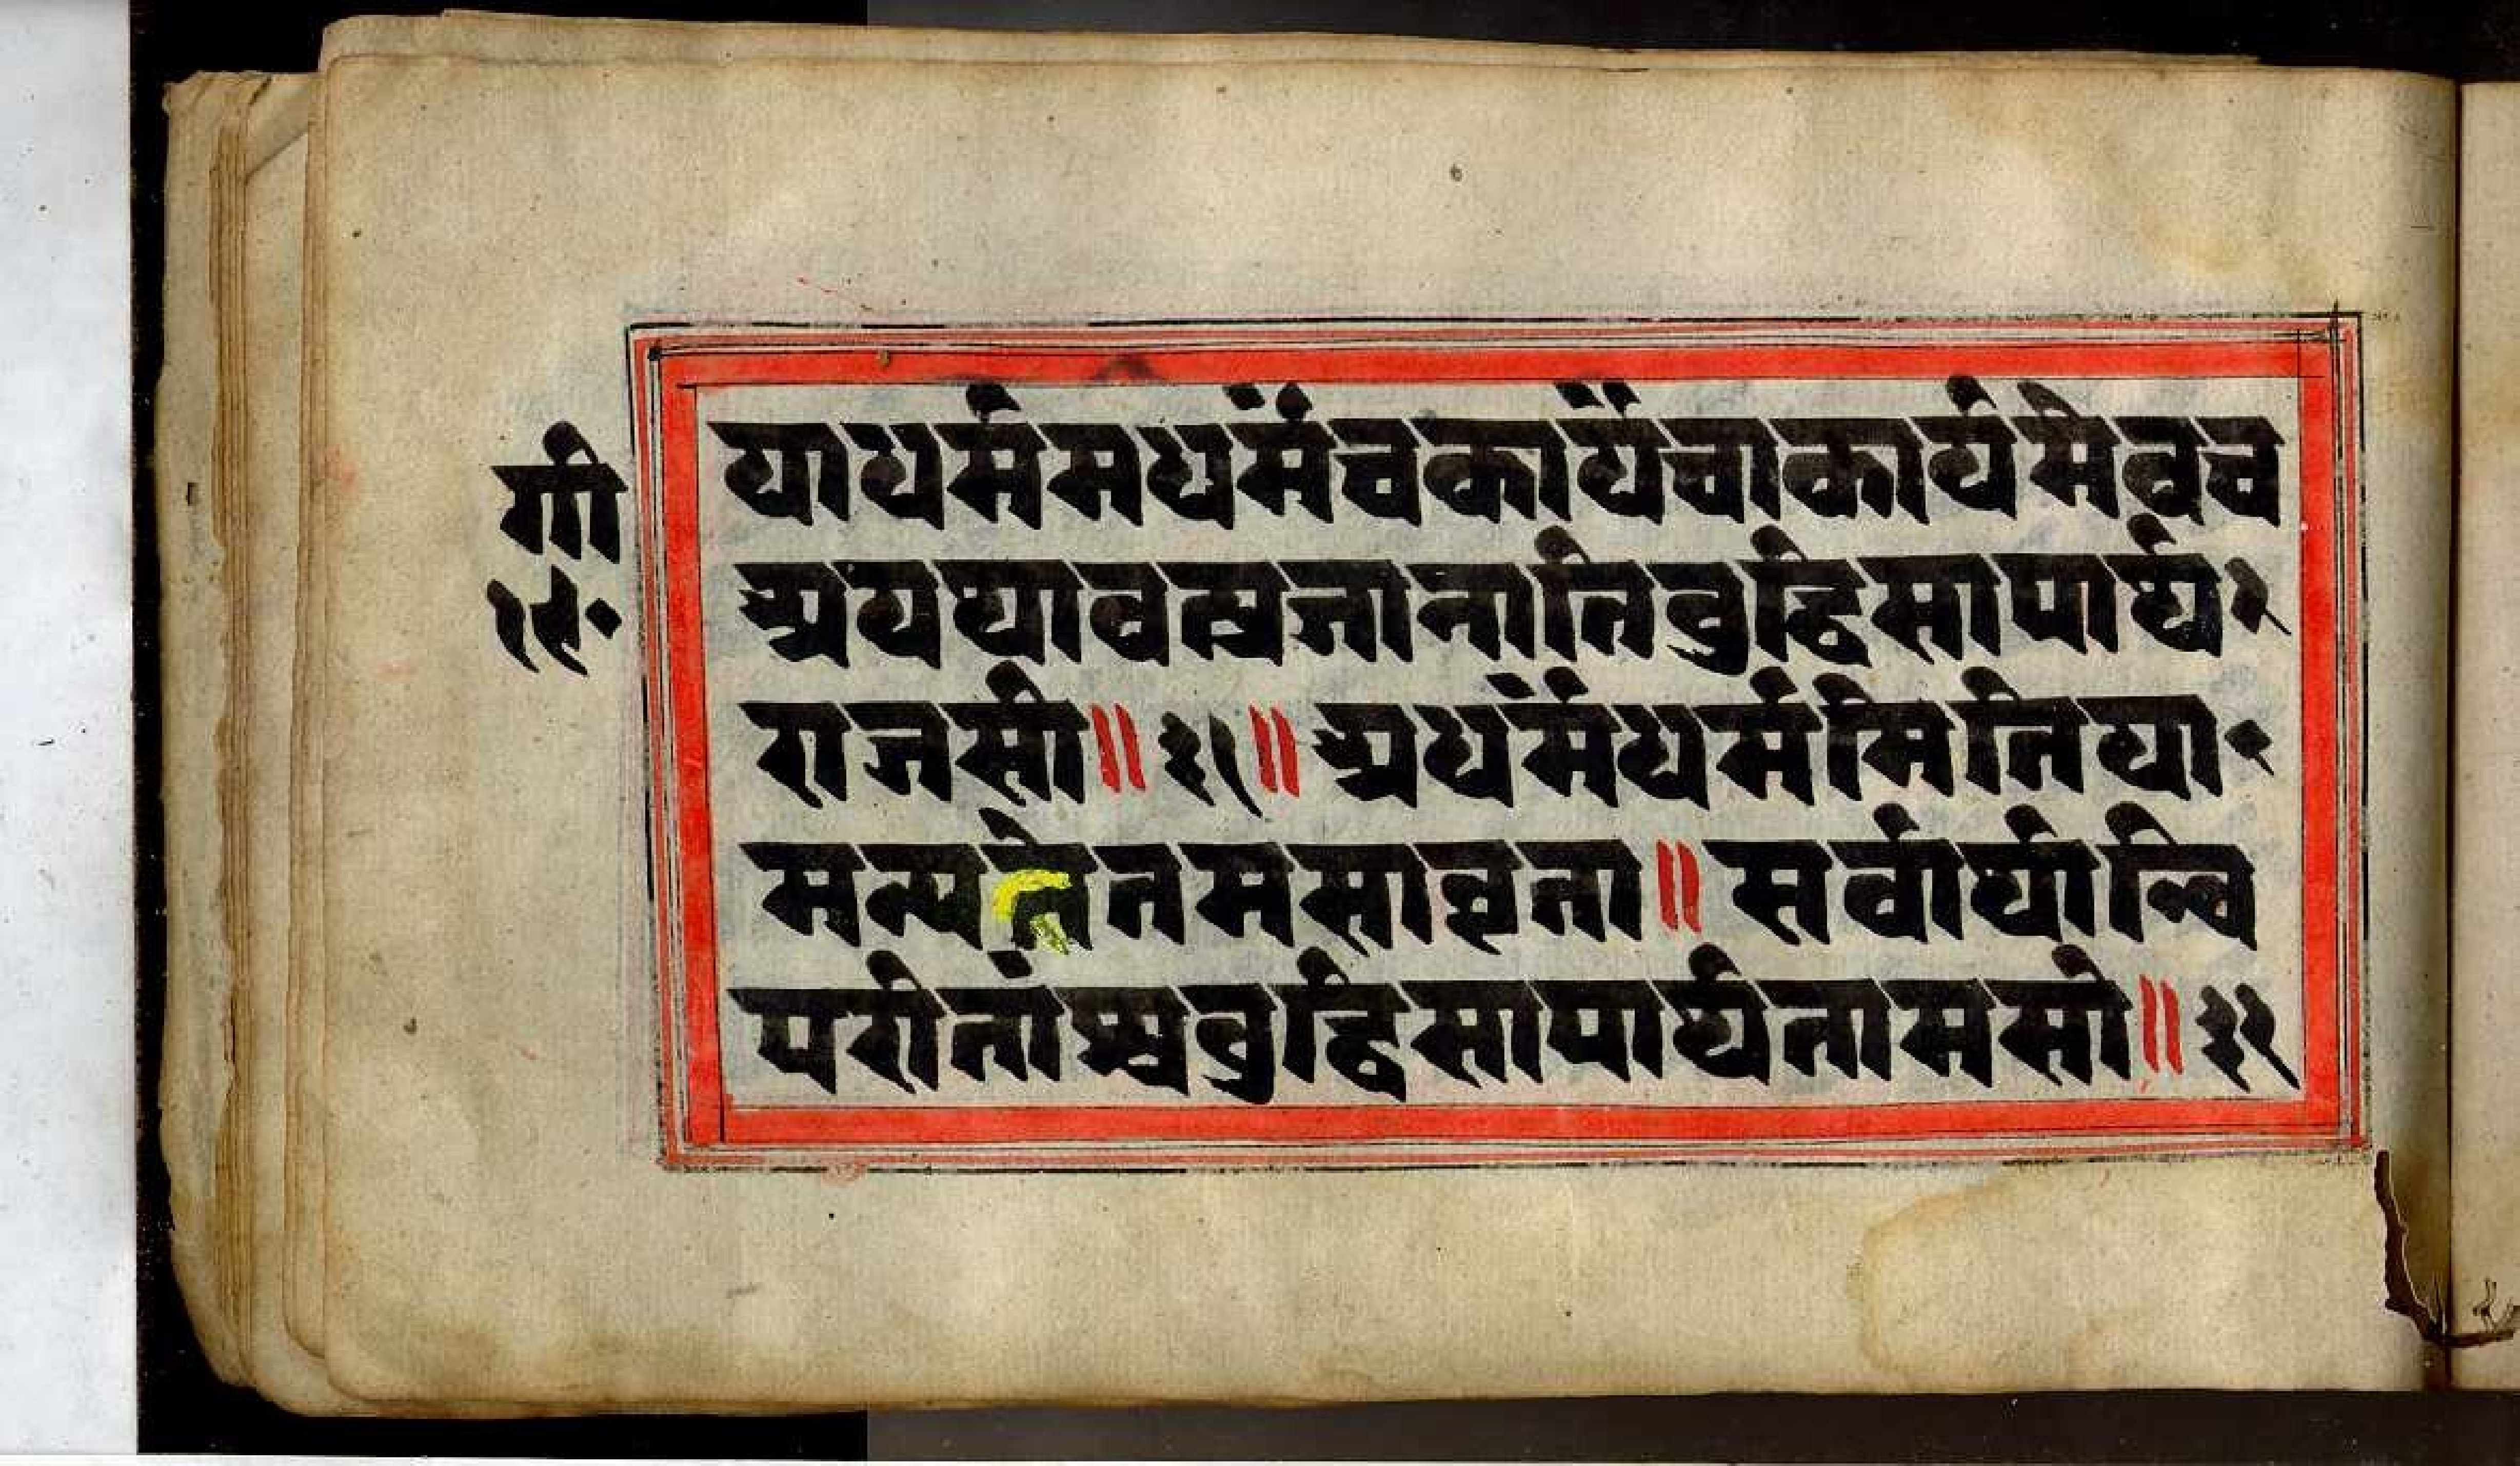 गी
१९॰
याधर्ममधर्मंचकार्यंचाकार्यमेवच
अयथावत्प्रजानातिबुद्धिसापार्थ
राजसी॥३१॥अधर्मंधर्ममितिया
मन्यतेतमसावृता॥सर्वार्थान्वि
परीतांश्चबुद्धिसापार्थतामसी॥३२